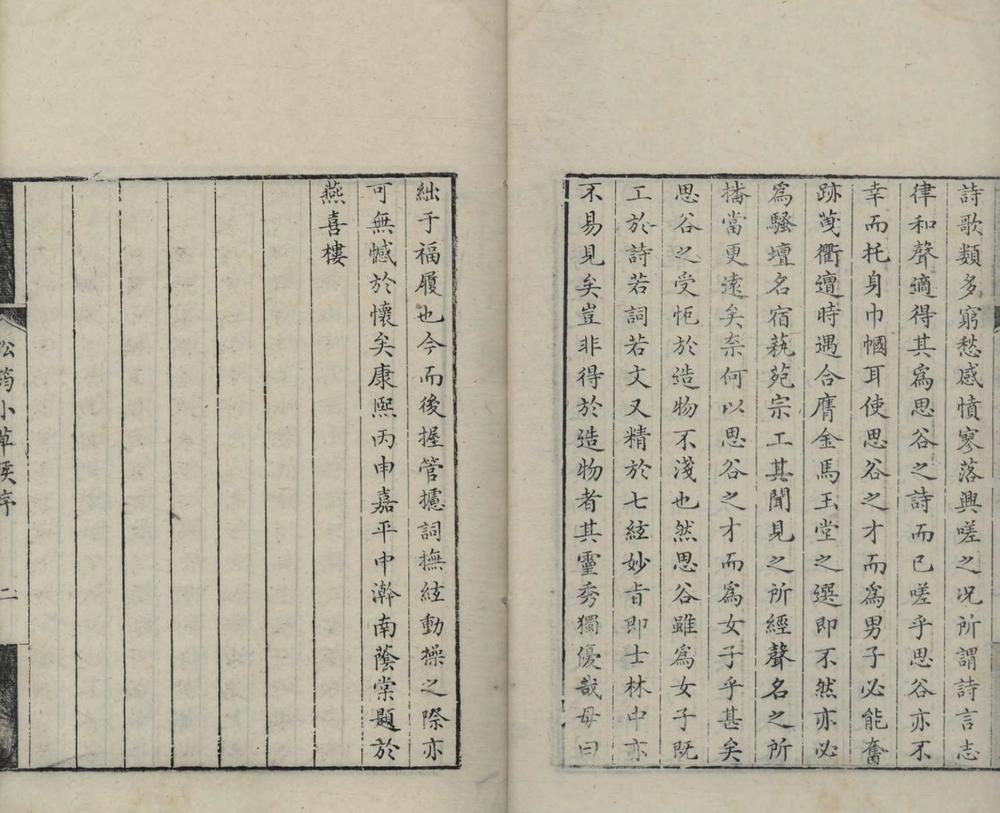 詩歌類多窮愁感憤寥落興嗟之况所謂詩言志
律和聲適得其爲思谷之詩而已嗟乎思谷亦不
幸而托身巾幗耳使思谷之才而爲男子必能奮
跡蔓衢邅時遇合膺金馬玉堂之選即不然亦必
爲騷壇名宿蓺苑宗工其聞見之所經聲名之所
播當更遠矣奈何以思谷之才而爲女子乎甚矣
思谷之受恠於造物不淺也然思谷雖爲女子既
工於詩若詞若文又精於七絃妙旨即士林中亦
不易見矣豈非得於造物者其靈秀獨優哉毋曰
絀于福履也今而後握管攄詞撫絃動操之際亦
可無憾於懷矣康熙丙申嘉平中澣南蔭棠題於
燕喜樓
松筠小草 序
二